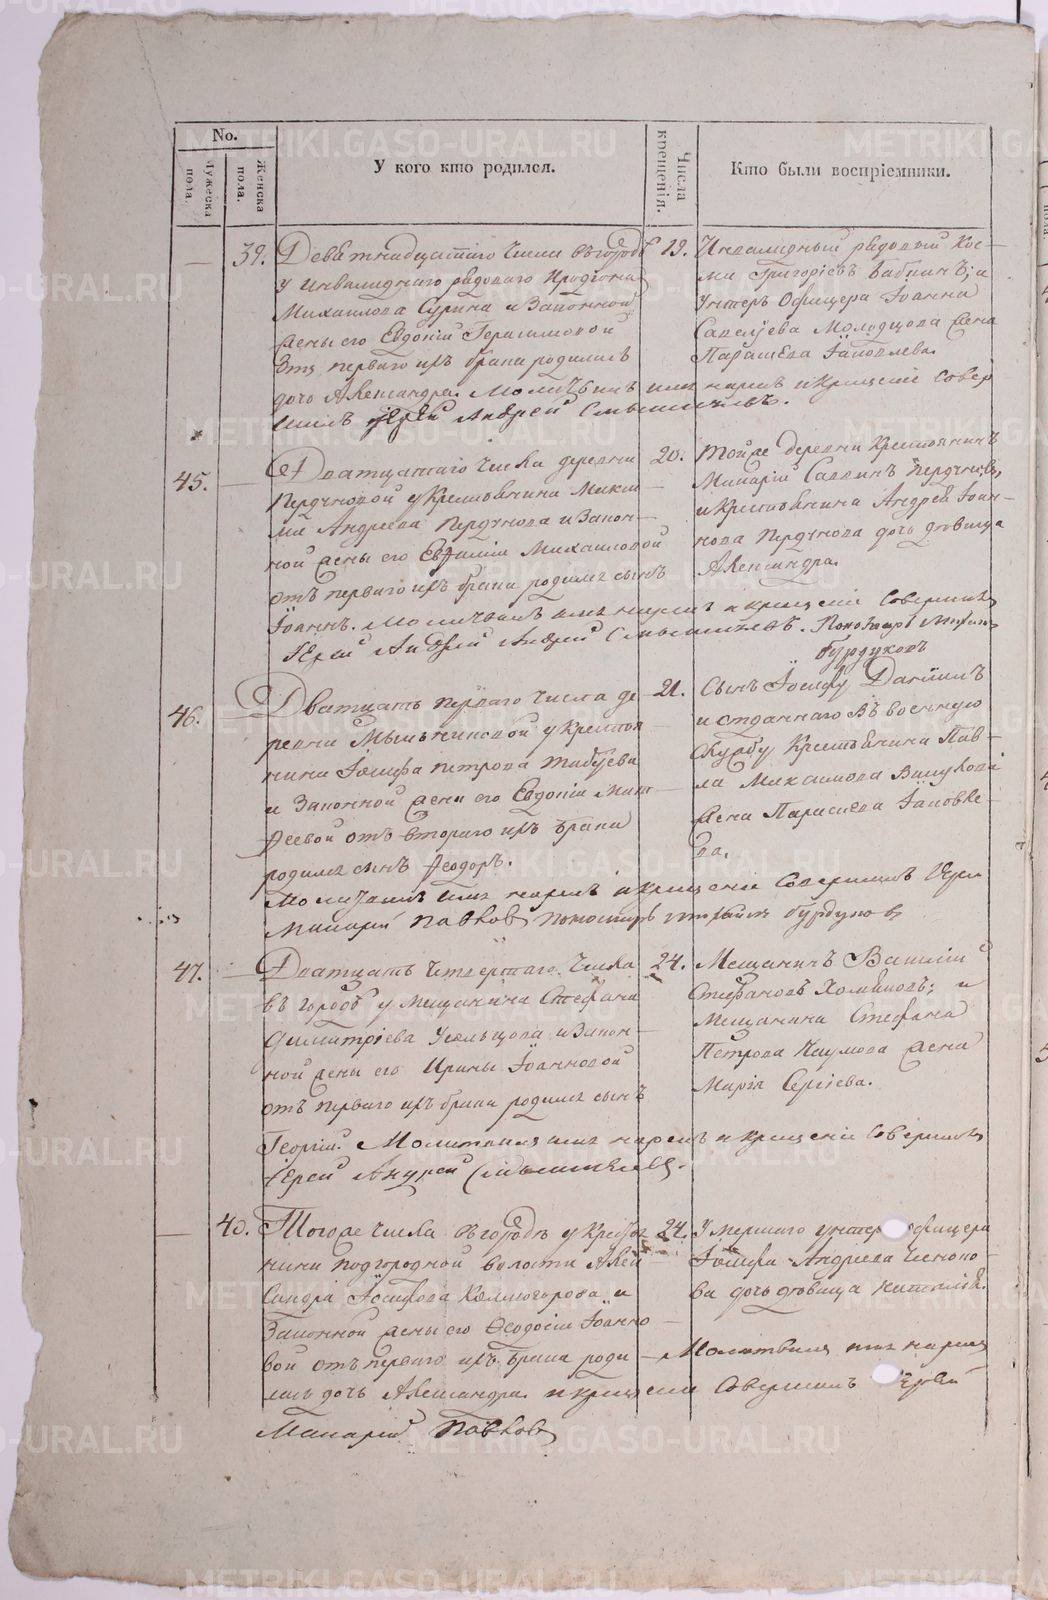 No.
Мужеска пола.
Женска пола.
У кого кто родился.
Числа крещенія.
Кто были воспріемники.
39. Девятнадцатаго числа въ городѣ
у инвалиднаго рядоваго
Михаилова Сурина и законной
жены его Евдокіи Герасимовой
отъ перваго ихъ брака родилась
дочь Александра. Молитвилъ имя нарекъ и крещеніе совер
шилъ Іерей Андрей
19. Инвалидный рядовый Кос-
ма Григоріевъ Бабкинъ; и
унтеръ офицера Іоанна
Савельева Молодцова жена
Параскева Іаковлева.
45. Дватцатаго числа деревни
у крестьянина Макси
ма Андреева и закон-
ной жены его Евфиміи Михаиловой
отъ перваго ихъ брака родился сынъ
Іоаннъ. Молитвилъ имя нарекъ и крещеніе совершилъ
Іерей Андрей Пономарь
Бурдуковъ
20. Тойже деревни крестьянинъ
Макарій Саввинъ
и крестьянина Андрея Іоан-
нова дочь дѣвица
Александра.
46. Дватцать перваго числа де
ревни Мыльниковой у крестья
нина Іосифа Петрова
и законной жены его Евдокіи Мат
феевой отъ втораго ихъ брака
родился сынъ Феодоръ.
Молитвилъ имя нарекъ и крещеніе совершилъ Іерей
Макарій Павловъ Пономарь Бурдуковъ
21. Сынъ Іосифу Даніилъ
и отданнаго въ военную
службу крестьянина Пав-
ла Максимова
жена Параскева Іаковле-
ва.
47. Дватцать четвертаго числа
въ городѣ у мещанина Стефана
Димитріева Усольцова и закон-
ной жены его Ирины Іоанновой
отъ перваго ихъ брака родился сынъ
Георгій. Молитвилъ имя нарекъ и крещеніе совершилъ
Іерей Андрей
24. Мещанинъ Василій
Стефановъ и
мещанина Стефана
Петрова Наумова жена
Марія Сергіева.
40. Тогоже числа въ городѣ у крестья
нина подгородной волости Алек
сандра Іосифова Колмогорова и
законной жены его Феодосіи Іоанно
вой отъ перваго ихъ брака роди
лась дочь Александра. и крещеніе совершилъ Іерей
Макарій Павловъ
24. Умершаго унтеръ офицера
Іосифа Андреева
ва дочь дѣвица
Молитвилъ имя нарекъ
METRIKI.GASO-URAL.RU